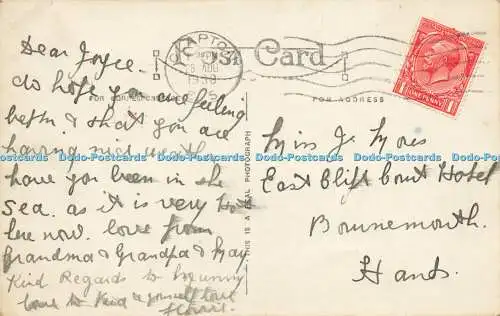 CLAPTON
1930
Post Card
FOR CORRESPONDENCE
FOR ADDRESS
ONE PENNY
THIS IS A REAL PHOTOGRAPH
Dear Joyce.
do hope you are feeling
better & that you are
having nice weath
have you been in the
Sea. as it is very Hot
here now. love from
Grandma & Grandpa & May
Kind Regards to Mummy
love to
Miss J.
East Cliff Court Hotel
Bournemouth.
Hands.
Dodo-Postcards Dodo-Postcards Dodo-Postcards Dodo-Postcards Dodo-Postcards